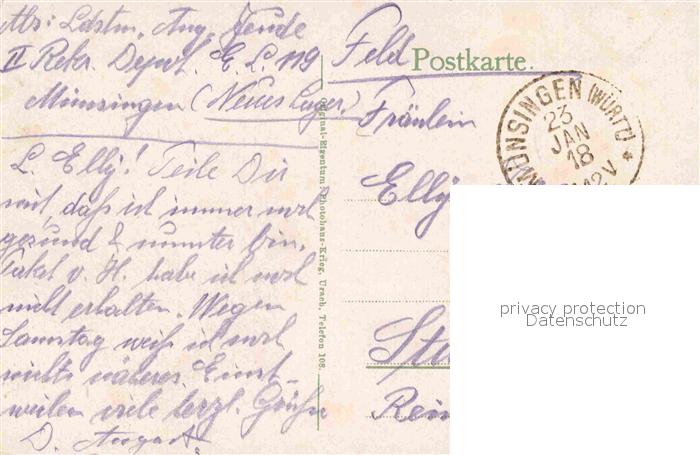 Abs: Ldstm. Aug. Fende
II Rekr. Depot. E. L. 119
Münsingen (Neues Lager)
L. Elly! Teile Dir
mit, daß ich immer noch
gesund & munter bin.
Paket v. H. habe ich noch
nicht erhalten. Wegen
Samstag weiß ich noch
nichts näheres. Einst-
weilen viele herzl. Grüße
D. August.
Original-Eigentum: Photohaus-Krieg, Urach, Telefon 108.
Feld Postkarte.
Fräulein
Elly
Stu
Rein
MÜNSINGEN (WÜRTT) *
23
JAN
18
12 V
privacy protection
Datenschutz